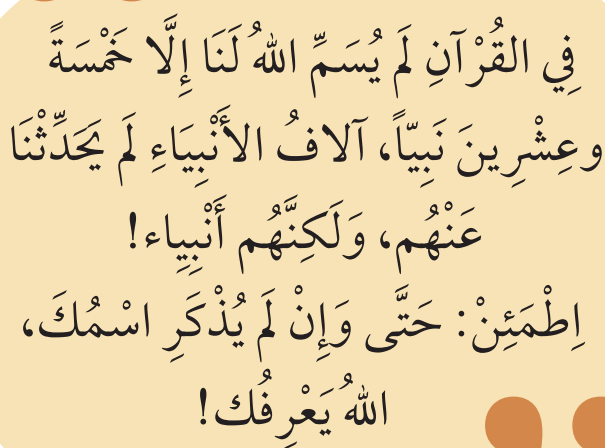 فِي القُرْآنِ لَم يُسَمِّ اللهُ لَنَا إِلَّا خَمْسَةً
وعِشْرِينَ نَبِيّاً، آلافُ الأَنْبِيَاءِ لَم يَحَدِّثْنَا
عَنْهُم، وَلَكِنَّهُم أَنْبِيِاء!
اِطْمَئِنْ: حَتَّى وَإِنْ لَم يُذْكَرِ اسْمُكَ،
اللهُ يَعْرِفُك!